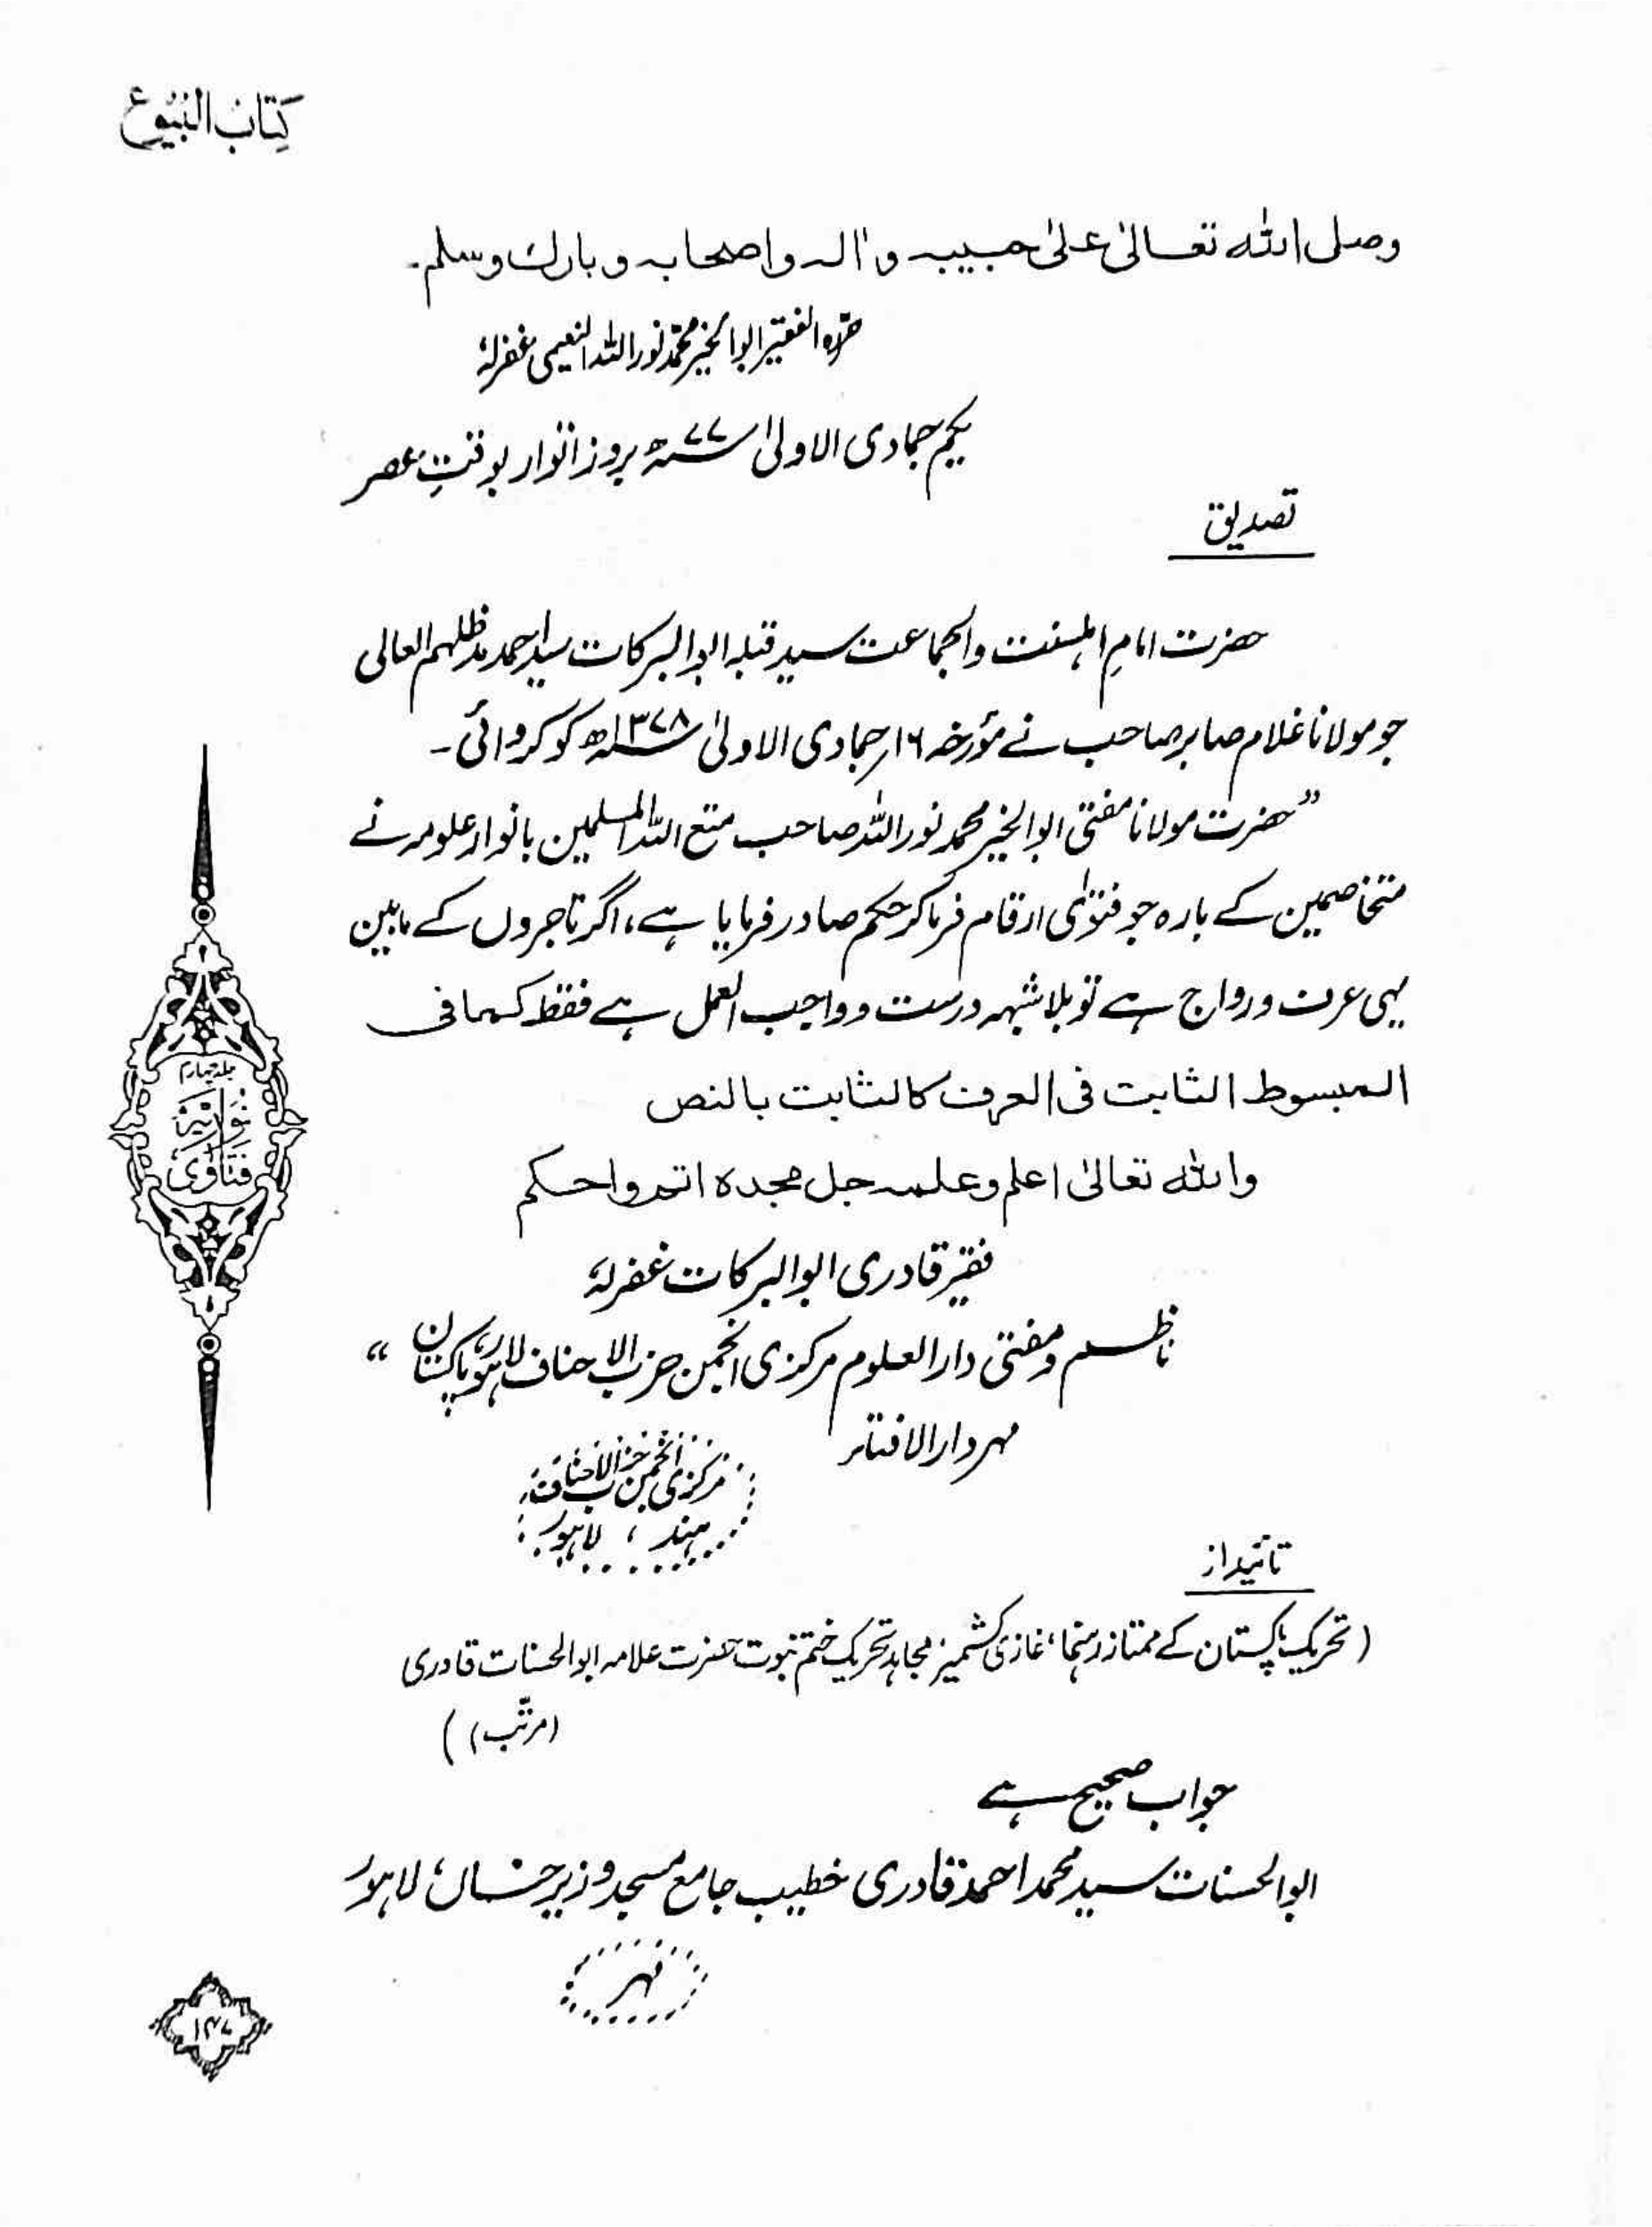 کِتَابُ الْبُيُوع
وصلی اللہ تعالیٰ علیٰ حبیبہ و اٰلہ و اصحابہ و بارک وسلم۔
حرّرہ الفقیر ابوالخیر محمد نور اللہ النعیمی غفرلہٗ
یکم جمادی الاولیٰ ۷۷ھ بروز اتوار بوقتِ عصر
تصدیق
حضرت امامِ اہلسنت والجماعت سید قبلہ ابوالبرکات سید احمد مدظلہم العالی
جو مولانا غلام صابر صاحب نے مؤرخہ ۱۶؍ جمادی الاولیٰ ۱۳۷۸ھ کو کروائی۔
”حضرت مولانا مفتی ابوالخیر محمد نور اللہ صاحب متع اللہ المسلمین بانوار علومہ نے
متخاصمین کے بارہ جو فتوٰی ارقام فرما کر حکم صادر فرمایا ہے، اگر تاجروں کے مابین
یہی عرف و رواج ہے تو بلاشبہہ درست و واجب العمل ہے فقط کما فی
المبسوط الثابت فی العرف کالثابت بالنص
واللہ تعالیٰ اعلم وعلمہ جل مجدہ اتم واحکم
فقیر قادری ابوالبرکات غفرلہٗ
ناظم و مفتی دارالعلوم مرکزی انجمن حزب الاحناف لاہور، پاکستان“
مہر دارالافتاء
مرکزی انجمن حزب الاحناف
ہند، لاہور
تائید از
(تحریک پاکستان کے ممتاز رہنما، غازی کشمیر، مجاہد تحریک ختم نبوت حضرت علامہ ابوالحسنات قادری
(مرتّب))
جواب صحیح ہے
ابوالحسنات سید محمد احمد قادری خطیب جامع مسجد وزیر خاں، لاہور
مہر
جلد چہارم
فتاویٰ نوریہ
۱۴۷